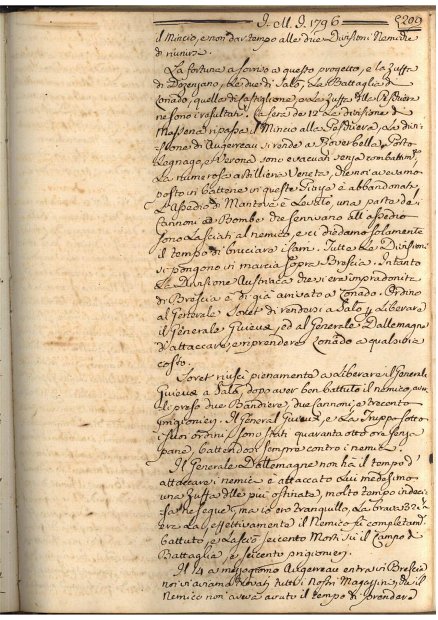 I. M. I. 1796 5209
il Mincio, e non dar tempo alle due Divisioni Nemiche
di riunirsi.
La fortuna a sorriso a questo progetto, e la zuffa
di Dezenzano, le due di Salò, la Battaglia di
Lonado, quella di Castiglione, e la zuffa della Peschiera
ne sono i resultati. La sera de' 12 la divisione di
Massena ripassa il Mincio alla Peschiera, la divi-
sione di Augereau si rende a Roverbella, Porto
Legnago, e Verona sono evacuati senza combattim.
La numerosa artiglieria Veneta, che noi avevamo
posto in batteria in queste Piazze è abbandonata
L'Assedio di Mantova è levato, una parte de'
Cannoni da Bombe che servivano all'assedio
sono lasciati al nemico, e ci diedamo solamente
il tempo di bruciare i Fusti. Tutte le Divisioni
si pongono in marcia sopra Brescia. Intanto
la Divisione Austriaca che si era impadronita
di Brescia è di già arrivata a Lonado. Ordino
al Generale Soret di rendersi a Salò p liberare
il Generale Guieux, ed al Generale Dallemagne
d'attaccare, e riprendere Lonado a qualsivia
costo.
Soret riuscì pienamente a liberare il Generale
Guieux a Salò, dopo aver ben battuto il nemico,
presso due Bandiere, due cannoni, e trecento
prigionieri. Il General Guieux, e la Truppa sotto
i suoi ordini sono stati quaranta otto ore senza
pane, battendosi sempre contro i nemici.
Il Generale Dallemagne non ha il tempo d'
attaccare i nemici è attaccato lui medesimo
una zuffa delle più ostinate, molto tempo indeci-
sa ne segue; ma io ero tranquillo, la brava
era là, effettivamente il Nemico fu completam.
battuto, e lasciò seicento Morti sù il Campo di
Battaglia, e seicento prigionieri.
Il 14 a mezzogiorno Augereau entra in Brescia
noi vi aviamo trovati tutti i nostri Magazzini, che il
Nemico non aveva avuto il tempo di prendere